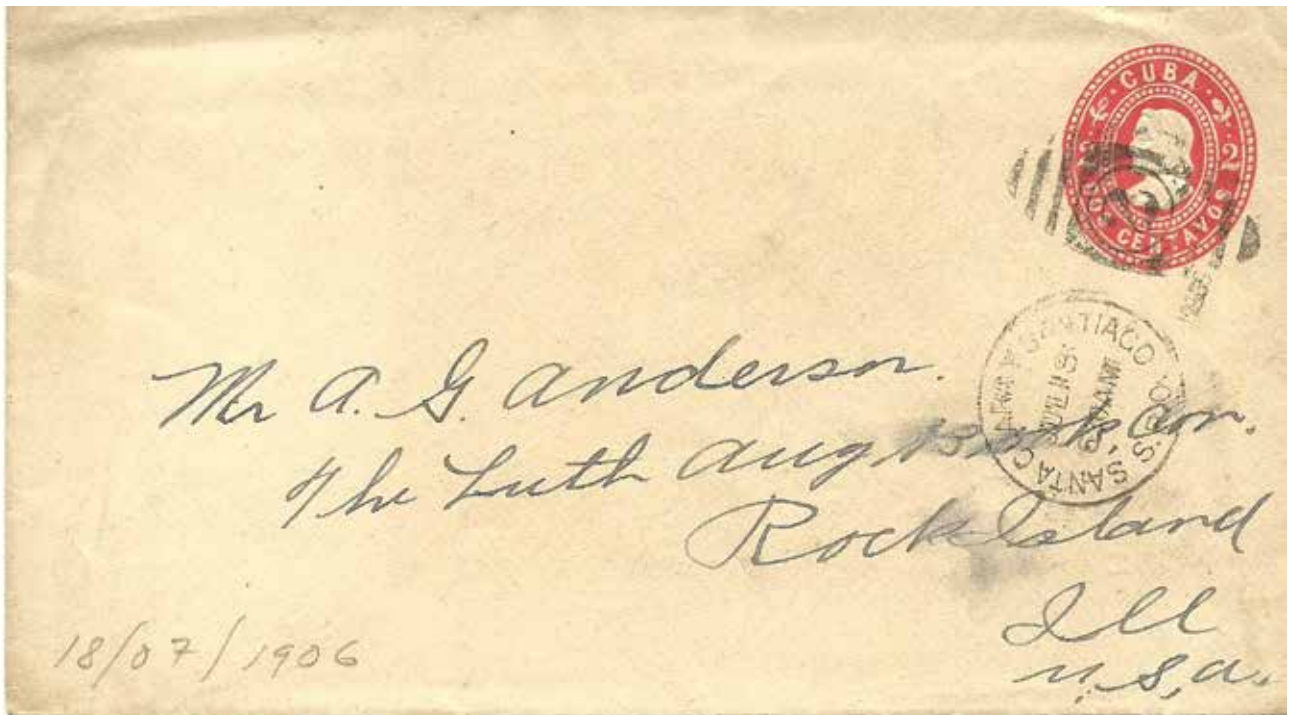 CUBA
2 2
DOS CENTAVOS
SANTA CLARA Y SANTIAGO
S.R.P.O.
Mr A. G. Anderson.
The Luth Aug Book Con.
Rock Island
Ill
U.S.A.
18/07/1906